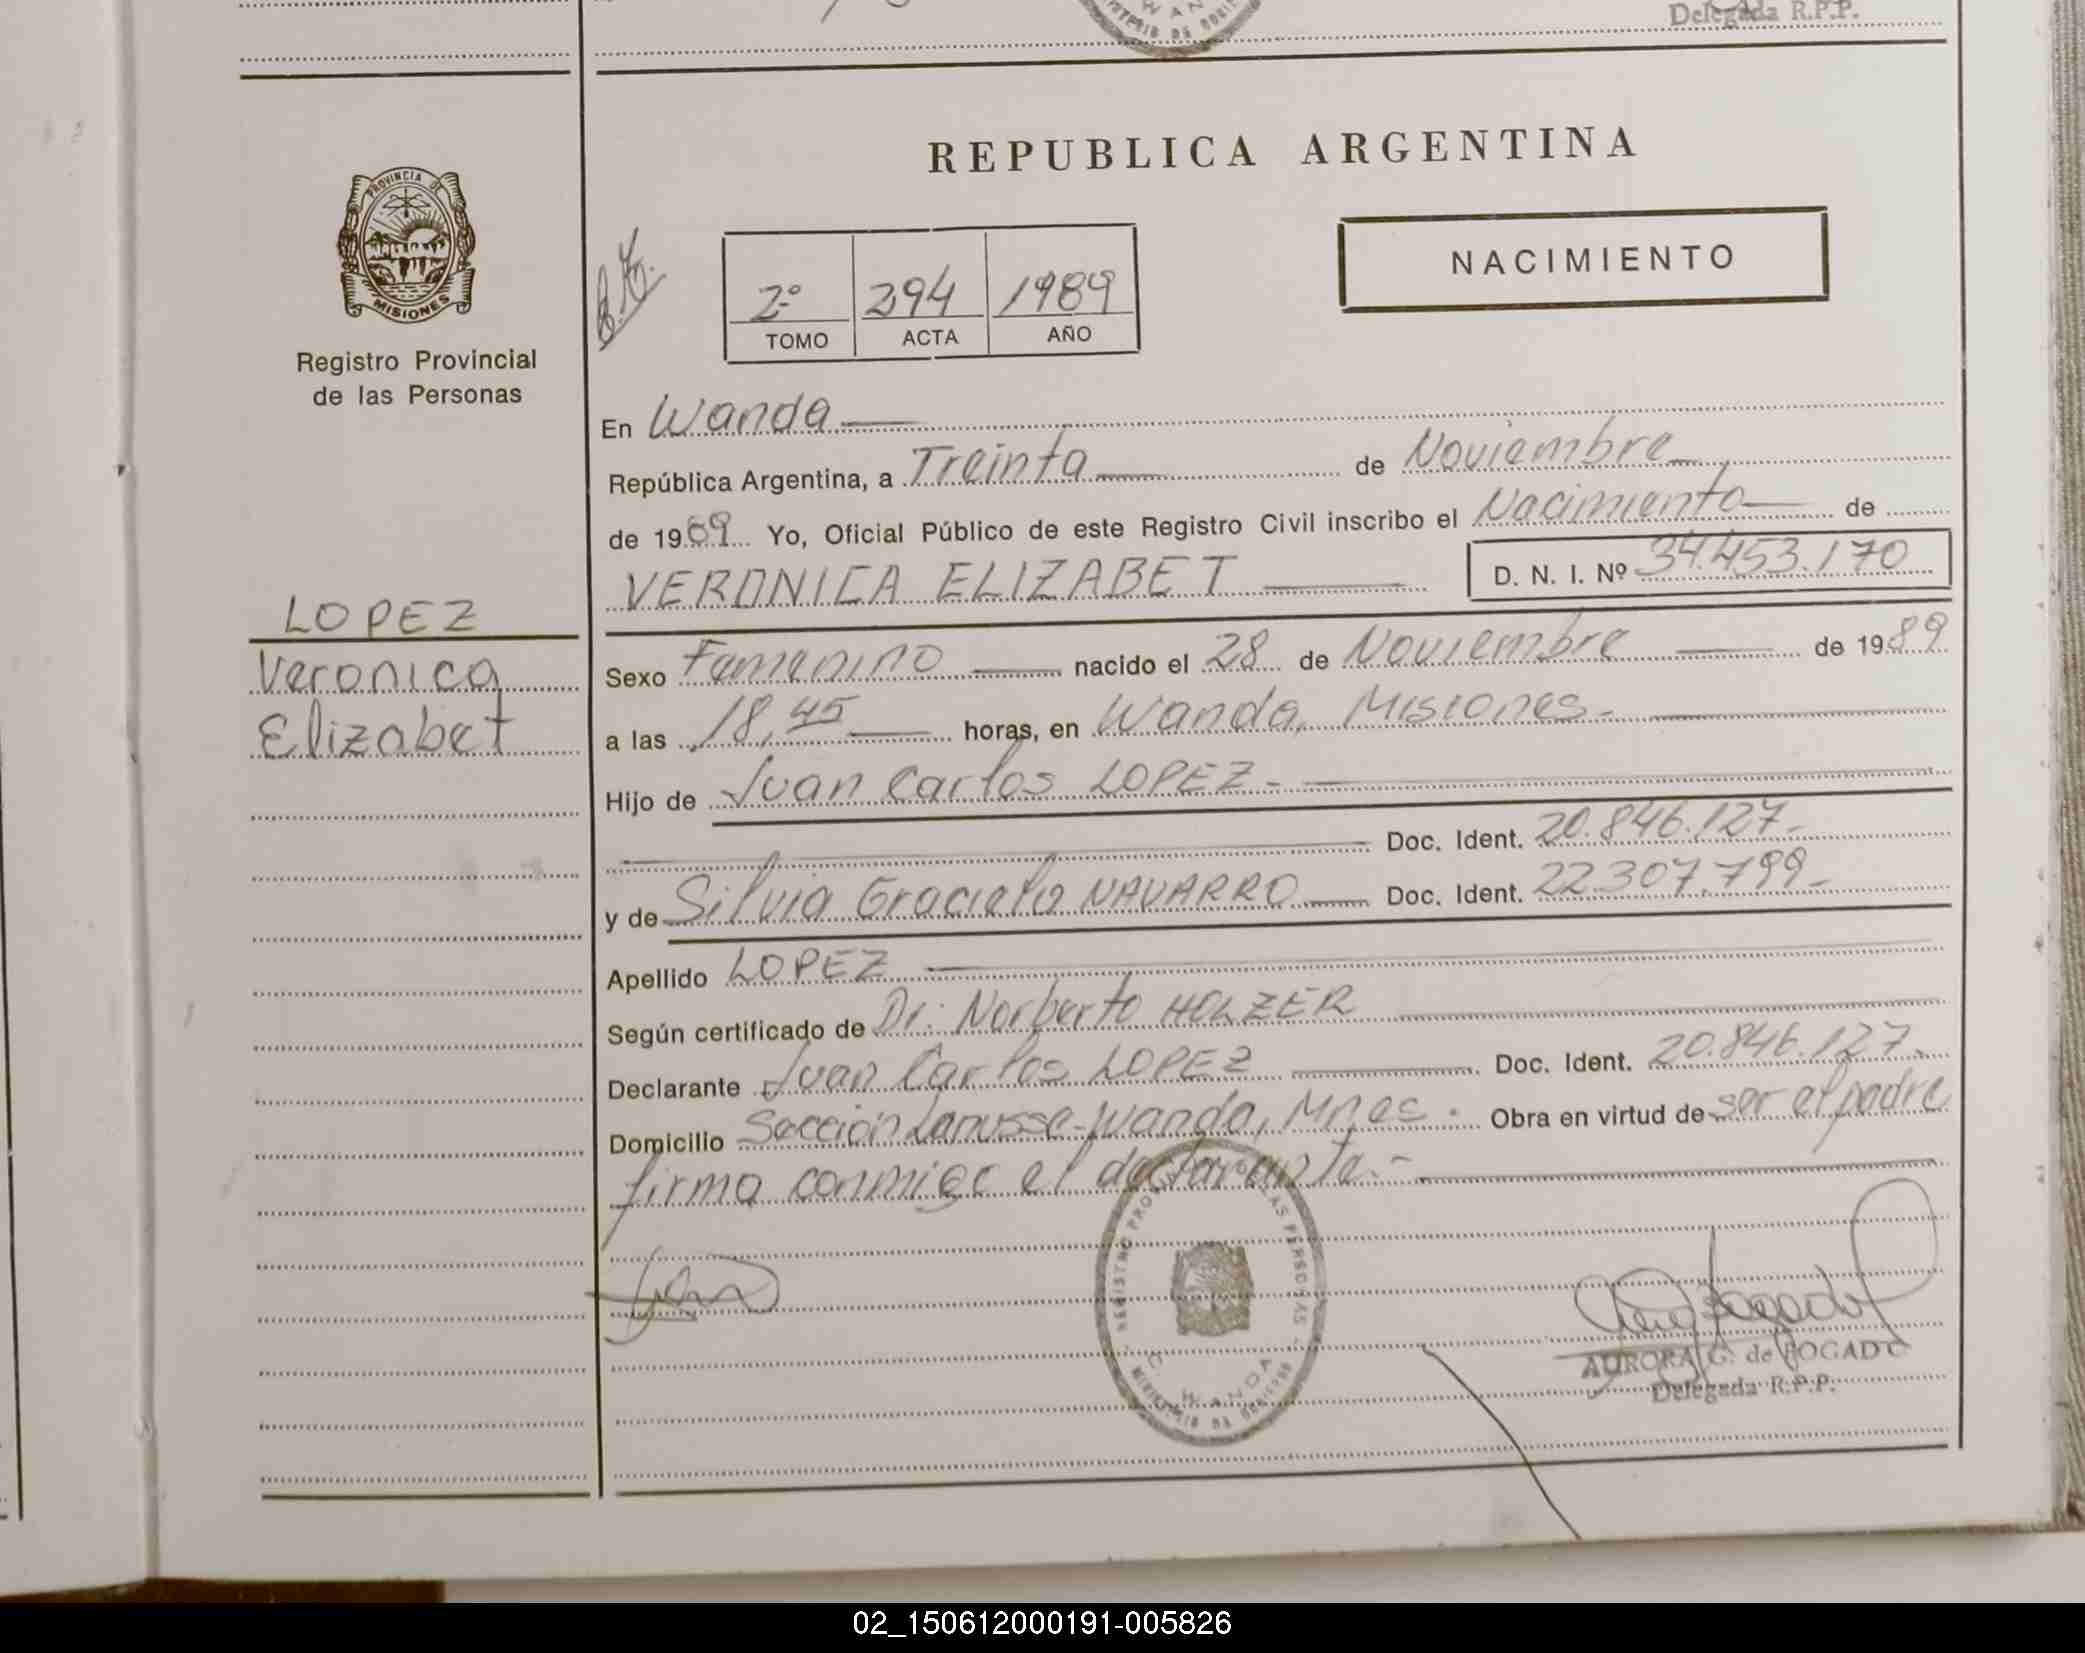 Delegada R.P.P.
PROVINCIA DE
MISIONES
Registro Provincial
de las Personas
LOPEZ
Veronica
Elizabet
REPUBLICA ARGENTINA
NACIMIENTO
2º 294 1989
TOMO ACTA AÑO
En Wanda
República Argentina, a Treinta de Noviembre
de 1989 Yo, Oficial Público de este Registro Civil inscribo el Nacimiento de
VERONICA ELIZABET D. N. I. Nº 34.453.170
Sexo Femenino nacido el 28 de Noviembre de 1989
a las 18,45 horas, en Wanda, Misiones.
Hijo de Juan Carlos LOPEZ
Doc. Ident. 20.846.127
y de Silvia Graciela NAVARRO Doc. Ident. 22.307.799
Apellido LOPEZ
Según certificado de Dr. Norberto HOLZER
Declarante Juan Carlos LOPEZ Doc. Ident. 20.846.127
Domicilio Sección Lanusse-Wanda, Mnes. Obra en virtud de ser el padre
firma conmigo el declarante.-
REGISTRO PROVINCIAL DE LAS PERSONAS
WANDA
MINISTERIO DE GOBIERNO
AURORA G. de POGADO
Delegada R.P.P.
02_150612000191-005826